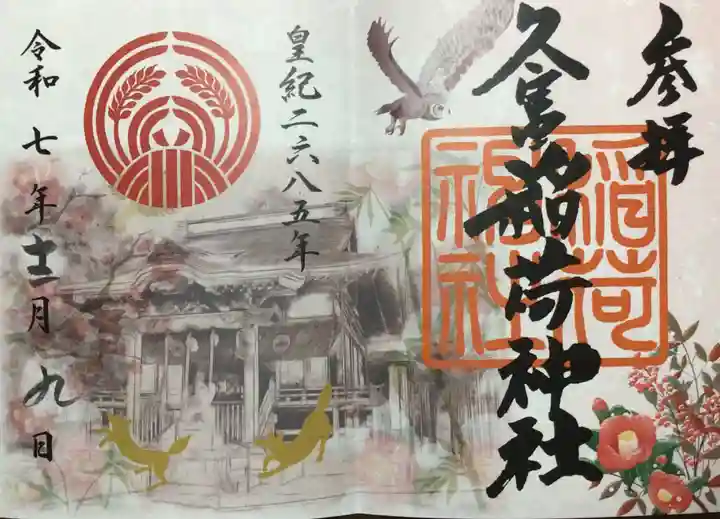 参拝
久富稲荷神社
稲荷
神社
皇紀二六八五年
令和七年十二月九日